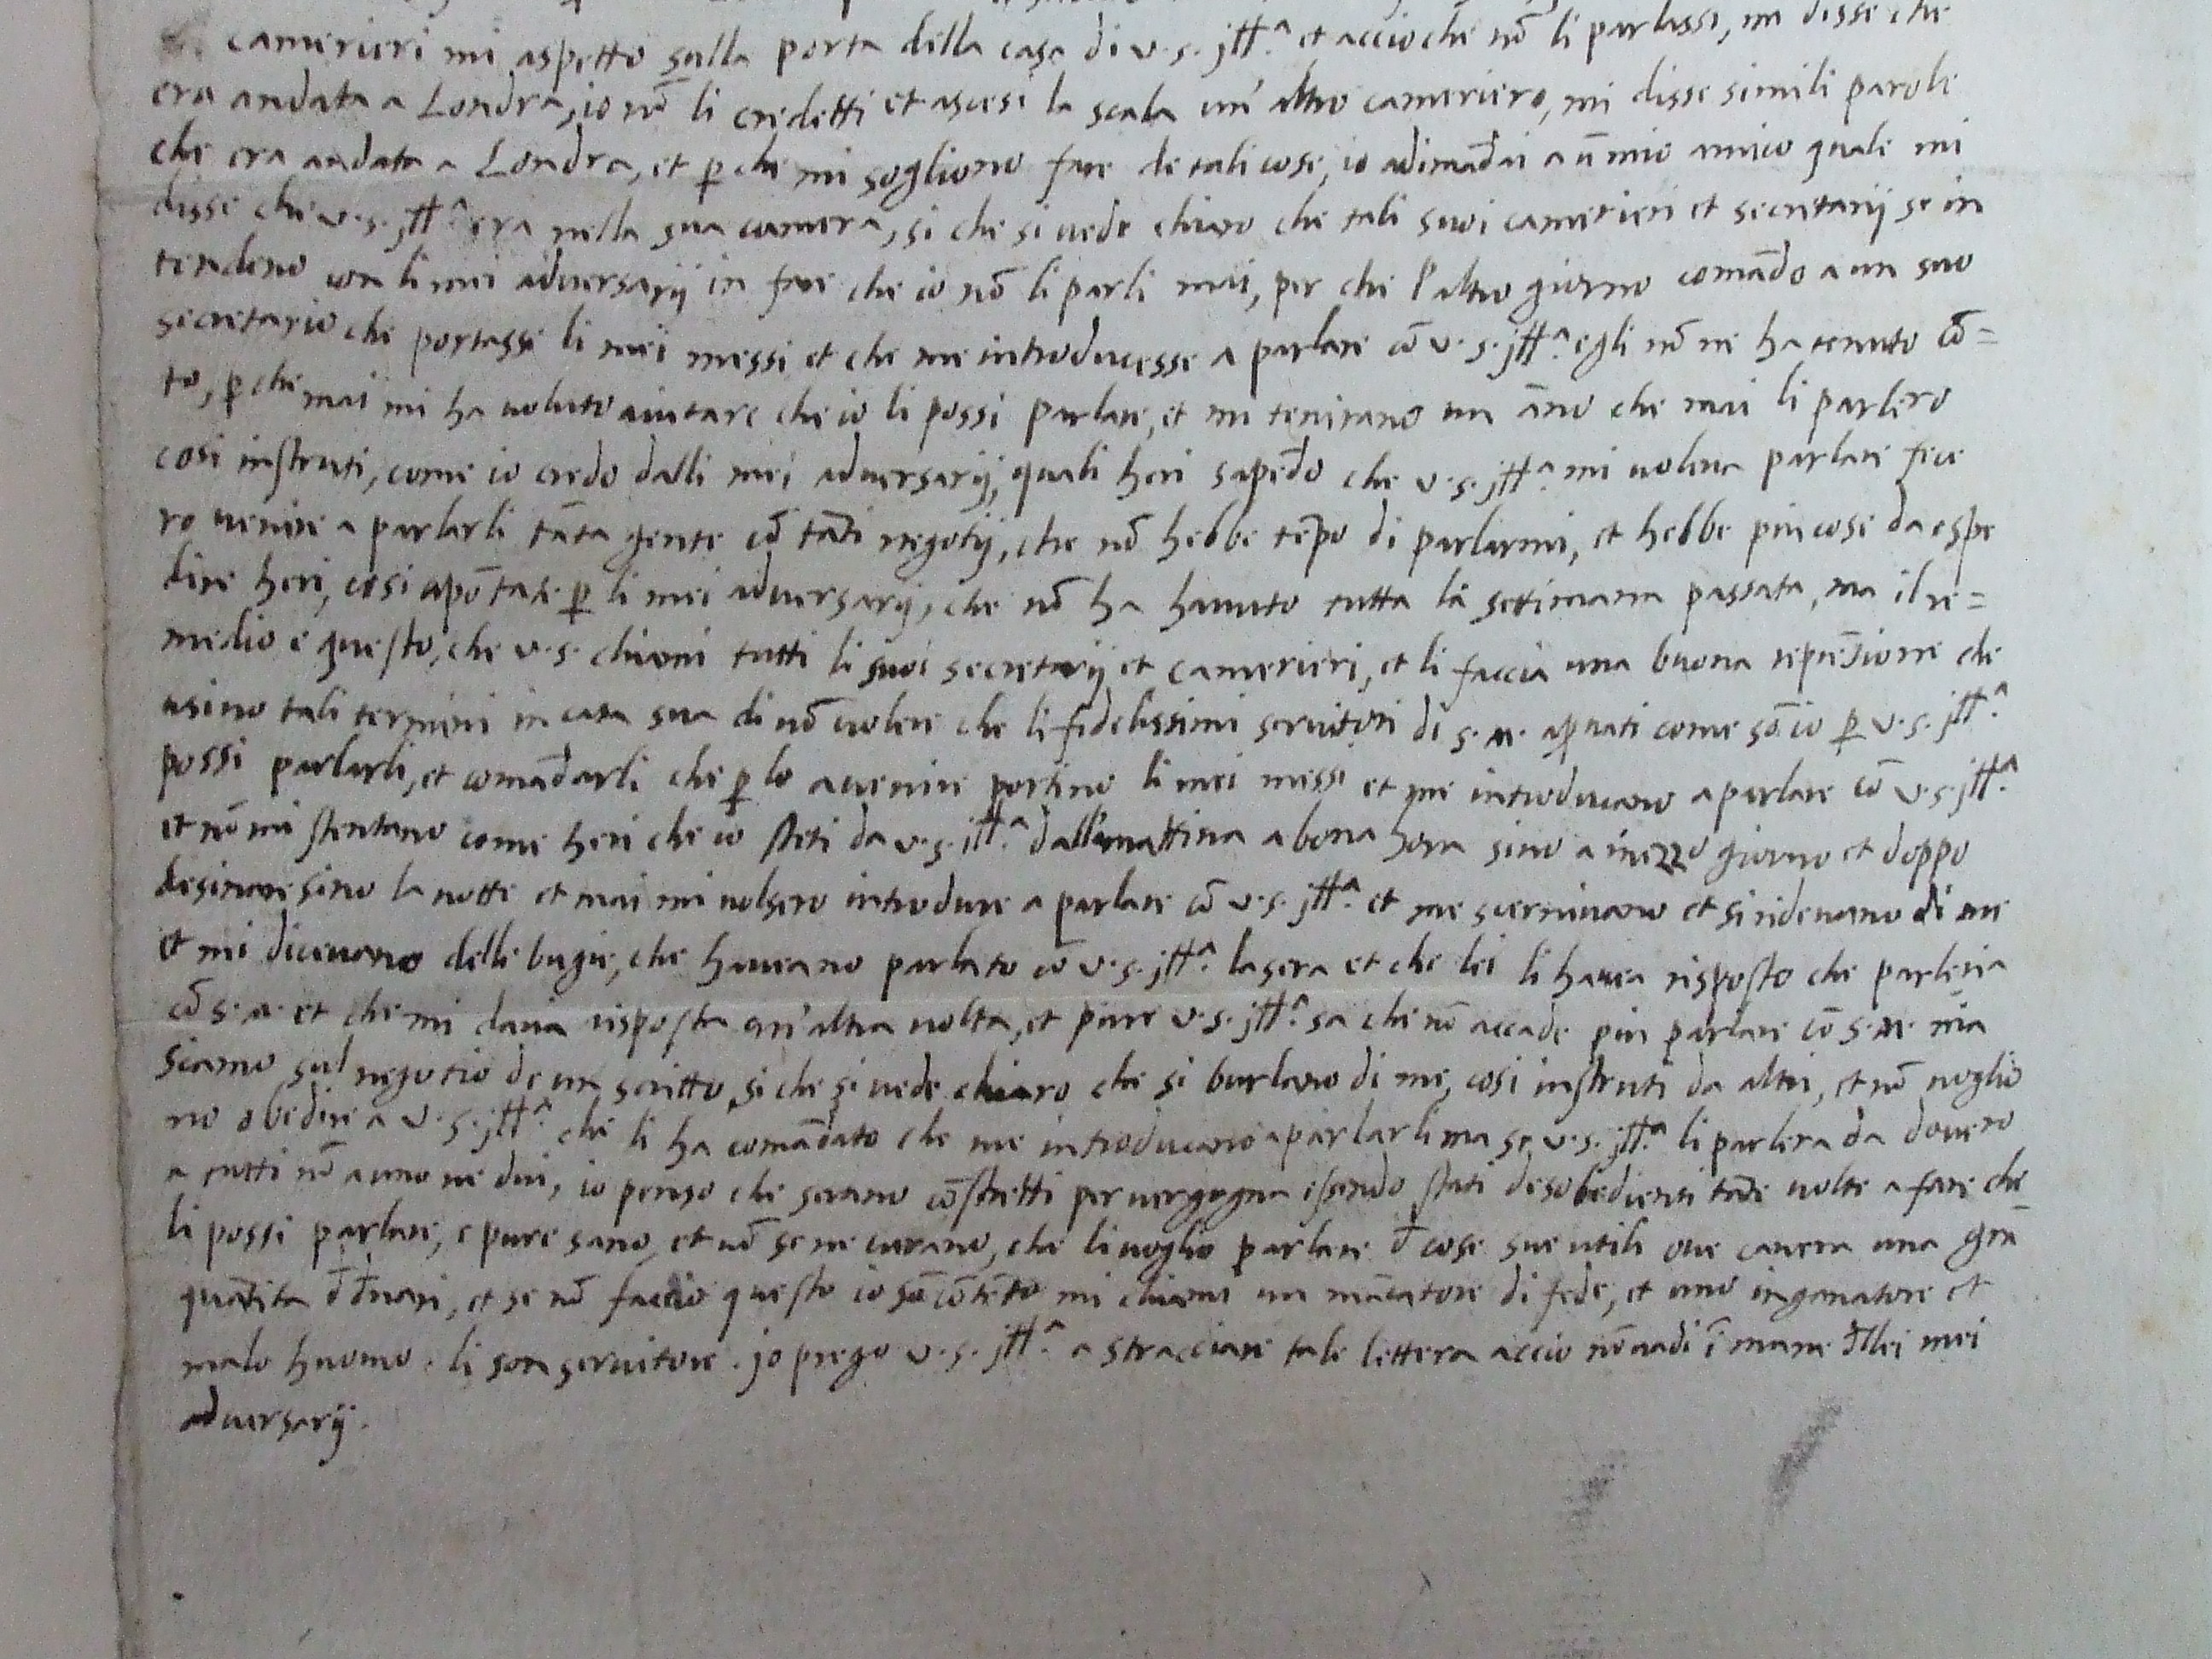 camerieri mi aspetto sulla porta della casa di v. s. jll.ª et accioche nō li parlassi, mi disse che
era andata a Londra, io nō li credetti et ascesi la scala un' altro cameriero, mi disse simili parole
che era andata a Londra, et p̱ che mi sogliono fare de tali cose, io adimādai a ū mio amico quale mi
disse che v. s. jll.ª era nella sua camera, si che si vede chiaro che tali suoi camerieri et secretarij se in
tendeno con li mei adversarij in fare che io nō li parli mai, per che l'altro giorno comādo a un suo
secretario che portasse li mei messi et che me introducesse a parlare cō v. s. jll.ª egli nō ne ha tenuto cō=
to, p̱ che mai mi ha voluto aiutare che io li possi parlare, et mi tenirano un āno che mai li parlero
cosi instruti, come io credo dalli mei adversarij, quali heri sapēdo che v. s. jll.ª mi voleva parlare fece
ro venire a parlarli tāta gente cō tāti negotij, che nō hebbe tēpo di parlarmi, et hebbe piu cose da espe
dire heri, cosi apōtate p̱ li mei adversarij, che nō ha havuto tutta la settimana passata, ma il re=
medio e questo, che v. s. chiami tutti li suoi secretarij et camerieri, et li faccia una buona reprēsione che
usino tali termini in casa sua di nō volere che li fidelissimi servitori di s. m. come sō io p̱ v. s. jll.ª
possi parlarli, et comādarli che p̱ lo avenire portino li mei messi et me introducano a parlare cō v. s. jll.ª
et nō mi stentano come heri che io steti da v. s. jll.ª dalla mattina a bona hora sino a mezzo giorno et doppo
desinare sino la notte et mai mi volsero introdure a parlare cō v. s. jll.ª et me scernivano et si ridevano di me
et mi dicevano delle bugie, che haveano parlato cō v. s. jll.ª la sera et che lei li havea risposto che parleria
cō s. m. et che mi daria risposta un'altra volta, et pure v. s. jll.ª sa che nō accade piu parlare cō s. m. ma
siamo sul negotio de un scritto, si che si vede chiaro che si burlano di me, cosi instruti da altri, et nō voglio
no obedire a v. s. jll.ª che li ha comādato che me introducano a parlarli ma se v. s. jll.ª li parlera da dovero
a tutti nō a uno ne dui, io penso che serano cōstretti per vergogna essendo stati desobedienti tāte volte a fare che
li possi parlare, e pure sano, et nō se ne curano, che li voglio parlare đ cose sue utili ove cavera una grā
quātita đ đnari, et se nō faccio questo io sō cōtēto mi chiami un mācatore di fede, et uno inganatore et
malo huomo. li son servitore. jo prego v. s. jll.ª a stracciare tale lettera accio nō vadi ī mane đllei mei
adversarij.